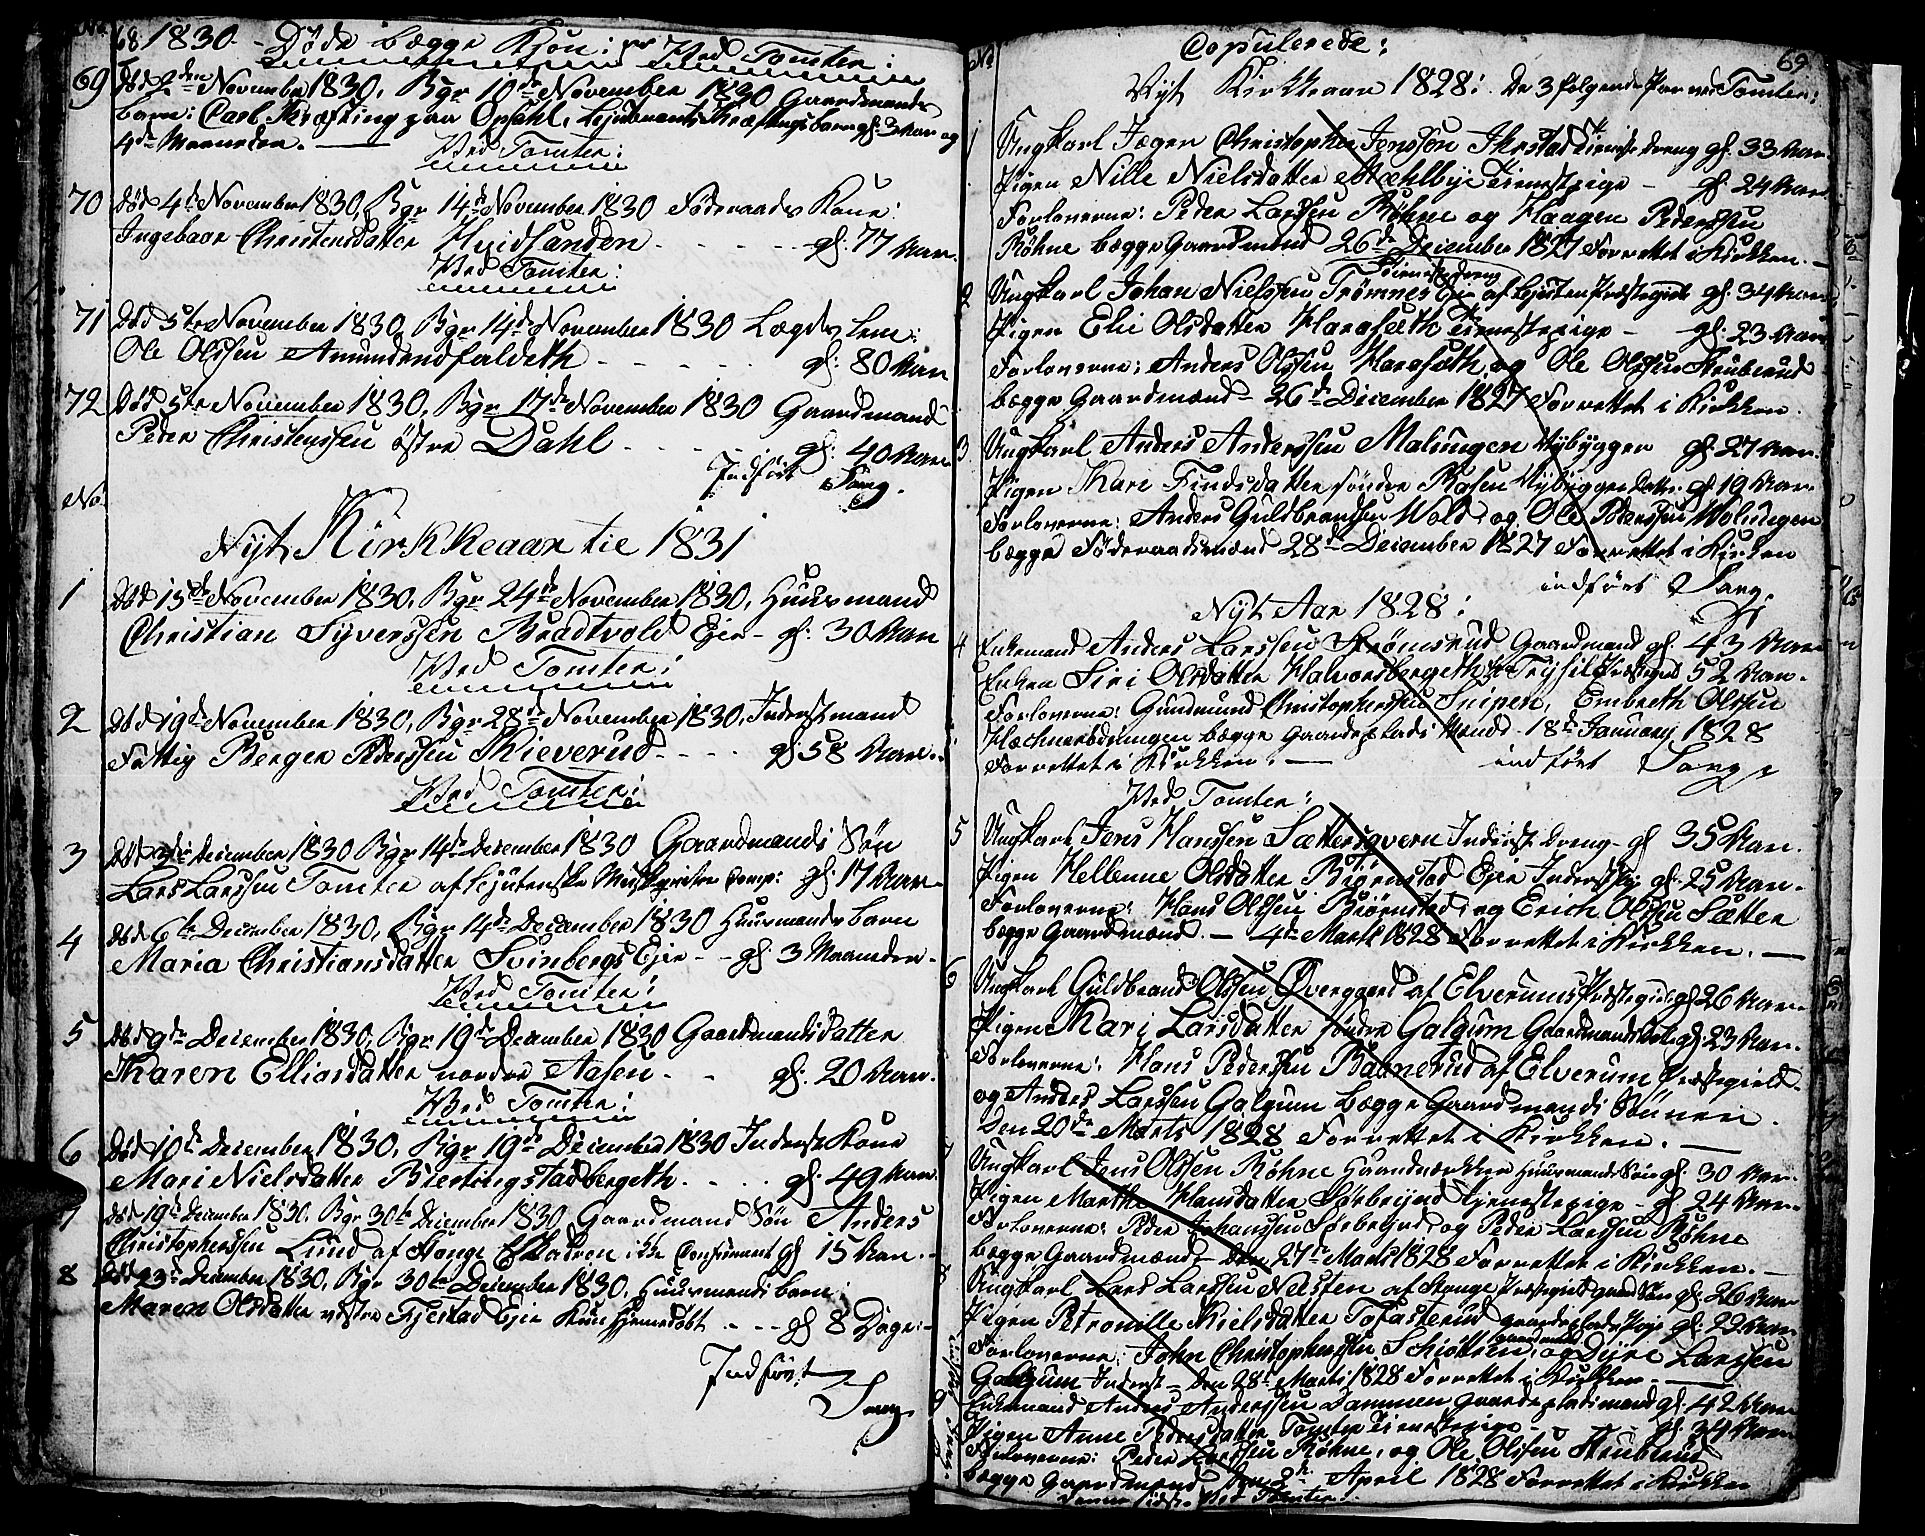 No 68 1830 - Døde begge Kjøn: ved Tomter:
69 Død 2den November 1830, Bgr 10de November 1830 Gaardmands
barn: Carl Kræfting paa Opsahl, Lieutnants Kræftings barn gl: 3 Aar og
4de Maaneder.
Ved Tomter:
70 Død 4de November 1830, Bgr 14de November 1830 Føderaads Kone:
Ingebaar Christensdatter Huidsanden - - - - gl: 77 Aar.
Ved Tomter:
71 Død 5te November 1830, Bgr 14de November 1830 Lægds lem:
Ole Olssen Amundrudfaldeth - - - - gl: 80 Aar
72 Død 5te November 1830, Bgr 17de November 1830 Gaardmand
Peder Christenssen østre Dahl - - - - gl: 40 Aar
Indført Sang.
No.
Nyt Kirkkeaar til 1831
1 Død 15de November 1830, Bgr 24de November 1830, Huusmand
Christian Syverssen Bradtvold Eje - gl: 30 Aar
Ved Tomter:
2 Død 19de November 1830, Bgr 28de November 1830, Inderstmand
Fattig Berger Pederssen Kieverud - - - gl: 58 Aar.
Ved Tomter:
3 Død 3die December 1830 Bgr 14de December 1830 Gaardmands Søn
Lars Larssen Tomter af Lejutenske Comp: gl: 17 Aar
4 Død 6te December 1830, Bgr 14de December 1830 Huusmands barn
Maria Christiansdatter Svinbergs Ejer - - gl: 3 Maaneder.
Ved Tomter:
5 Død 9de December 1830, Bgr 19de December 1830 Gaardmandsdatter
Karen Elliasdatter nordre Aasen - - gl: 20 Aar.
Ved Tomter:
6 Død 10de December 1830, Bgr 19de December 1830 Inderst Kone
Mari Nielsdatter Biertingstadbergeth. - - - gl: 49 Aar.
7 Død 19de December 1830, Bgr 30te December 1830, Gaardmand Søn Anders
Christopherssen Lund af Stange Eskadron ikke Confirmert gl 15 Aar.
8 Død 23de December 1830, Bgr 30te December 1830, Huusmands barn
Maren Olsdatter vestre Gjestad Ejer Kun hjemedøbt - - - gl 8 Dage:
Indført
Sang.
No Copulerede: 69
Nyt Kirkkeaar 1828: De 3 følgende Par ved Tomter:
1 Ungkarl Jæger Christopher Jenssen Ihrstad tieneste dreng gl. 33 Aar
Pigen Nille Nielsdatter Mæhlbye tienestepige - gl: 24 Aar
Forloverne: Peder Larssen Røhne og Haagen Pederssen
Røhne begge Gaardmænd 26de December 1827 Forrettet i Kirken.
2 Ungkarl Johan Nielssen Frømnes Eje af Lejuten Præstegield gl: 34 Aar
tienestedreng
Pigen Elie Olsdatter Harasæth tienestepige - gl: 23 Aar
Forloverne: Anders Olssen Harasæth og Ole Olssen Struberud
begge Gaardmænd - 26de December 1827 Forrettet i Kirken.
3 Ungkarl Anders Anderssen Malungen Nybygger gl: 27 Aar.
Pigen Kari Findsdatter søndre Rasen Nybygger datter gl 19 Aar.
Forloverne: Anders Guldbrandsen Wold og Ole Pederssen Molungen
begge Føderaadsmænd 28de December 1827 Forrettet i Kirken
indført Sang.
Nyt Aar 1828:
4 Enkemand Anders Larssen Strømsrud Gaardmand gl: 43 Aar
Enken Siri Olsdatter Halvorsbergeth fra Trysil Præstegield 52 Aar.
Forloverne: Gundmund Christopherssen Snipen, Embreth Olssen
Klæchnerødningen begge Gaardeplads Mænd - 18de January 1828
Forrettet i Kirken: - indført Sang
Ved Tomter:
5 Ungkarl Jens Hanssen Sættersqvern Inderst dreng gl 35 Aar.
Pigen Hellenne Olsdatter Biørnstad Eje Inderstpig gl: 25 Aar.
Forloverne: Hans Olssen Biørnstad, og Erich Olssen Sætter
begge Gaardmænd. - 4de Marts 1828 Forrettet i Kirken.
6 Ungkarl Guldbrand Olssen Øvergaard af Elverums Præstegield gl 26 Aar
Pigen Kari Larsdatter søndre Galgum Gaardmandsdatter gl 23 Aar.
Forloverne: Hans Pederssen Bahnerud af Elverum Præstegield.
og Anders Larssen Galgum begge Gaardmands Sønner.
Den 20de Marts 1828 Forrettet i Kirken.
7 Ungkarl Jens Olssen Røhne Haandværkker Huusmands Søn gl: 30 Aar.
Pigen Marthe Hansdatter Sørbejyd tjenestepige - gl 24 Aar
Forloverne: Peder Johanssen Sørbejyd og Peder Larssen Røhne
begge Gaardmænd - den 27de Marts 1828 Forrettet i Kirken.
8 Ungkarl Lars Larssen Nersten af Stange Præstegield gaardm Søn gl: 26 Aar
Pigen Petronille Nielsdatter Tofasterud gaardeplads Pige gl: 29 Aar
Forloverne: John Christopherssen Schiøtten, gaardmand, og Djre Larssen
Galgum Inderst - den 28de Marts 1828 Forrettet i Kirken.
9 Enkemand Anders Anderssen Dammen gaardeplads mand gl: 42 Aar
Pigen Anne Pedersdatter Tomter tienestepige gl: 34 Aar
Forloverne: Peder Larssen Røhne, og Ole Olssen Struberud
begge Gaardmænd den 8de April 1828 Forrettet i Kirken
denne sidste Ved Tomter.